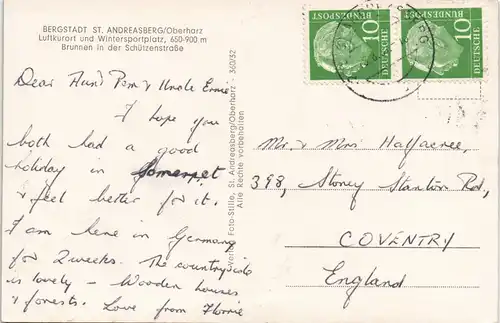 BERGSTADT ST. ANDREASBERG/Oberharz
Luftkurort und Wintersportplatz, 650-900 m
Brunnen in der Schützenstraße
Dear Aunt Pem & Uncle Ernie
I hope you
both had a good
holiday in Somerset
& feel better for it.
I am here in Germany
for 2 weeks. The countryside
is lovely - Wooden houses
& forests. Love from Florrie
Foto-Stille, St. Andreasberg/Oberharz - 360/52
Alle Rechte vorbehalten
DEUTSCHE
BUNDESPOST
10
DEUTSCHE
BUNDESPOST
10
Mr. & Mrs Halfacree,
398, Stoney Stanton Rd,
COVENTRY
England